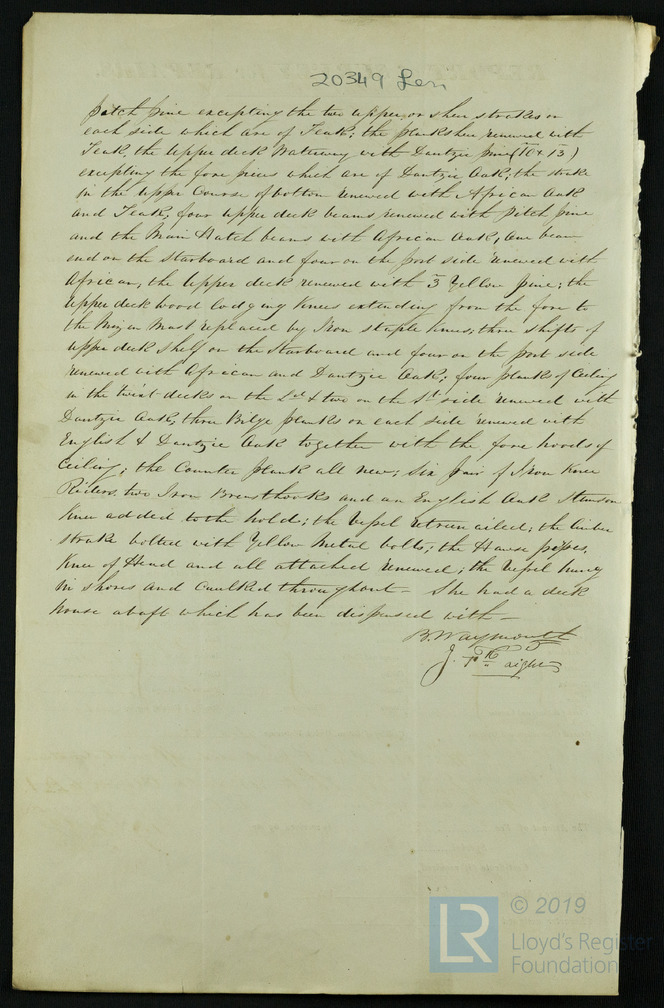 20349 Lon
pitch pine excepting the two upper or sheer strakes on
each side which are of Teak; the planksheer renewed with
Teak, the Upper deck Waterway with Dantzic pine (10 x 13)
excepting the fore pieces which are of Dantzic Oak; the strake
in the Upper Course of bottom renewed with African Oak
and Teak, four upper deck beams renewed with pitch pine
and the Main Hatch beams with African Oak, One beam
end on the Starboard and four on the port side renewed with
African, the Upper deck renewed with 3 Yellow pine; the
Upper deck wood lodging Knees extending from the fore to
the Mizen Mast replaced by Iron staple knees; three shifts of
upper deck shelf on the Starboard and four on the port side
renewed with African and Dantzic Oak; four planks of Ceiling
in the twixt decks on the and two on the side renewed with
Dantzic Oak, three Bilge planks on each side renewed with
English & Dantzic Oak together with the fore hoods of
Ceiling; the Counter plank all new; Six pair of Iron Knee
Riders, two Iron Breasthooks and an English Oak Stemson
Knee added to the hold; the Vessel retreenailed; the limber
strake bolted with Yellow Metal bolts; the Hawse pipes,
Knee of Head and all attached renewed; the Vessel hung
in shores and Caulked throughout - She had a deck
house abaft which has been dispensed with -
B. Waymouth
J.
© 2019
LR
Lloyd's Register
Foundation